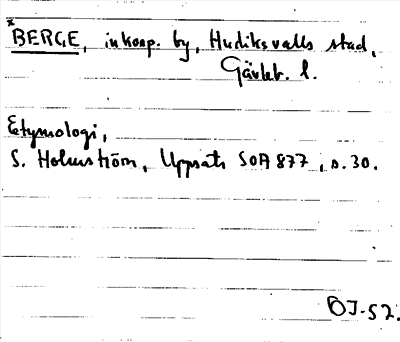 *BERGE, inkorp. by, Hudiksvalls stad,
Gävleb. l.
Etymologi,
S. Holmström, Uppsats SOA 877, s. 30.
OJ-52.